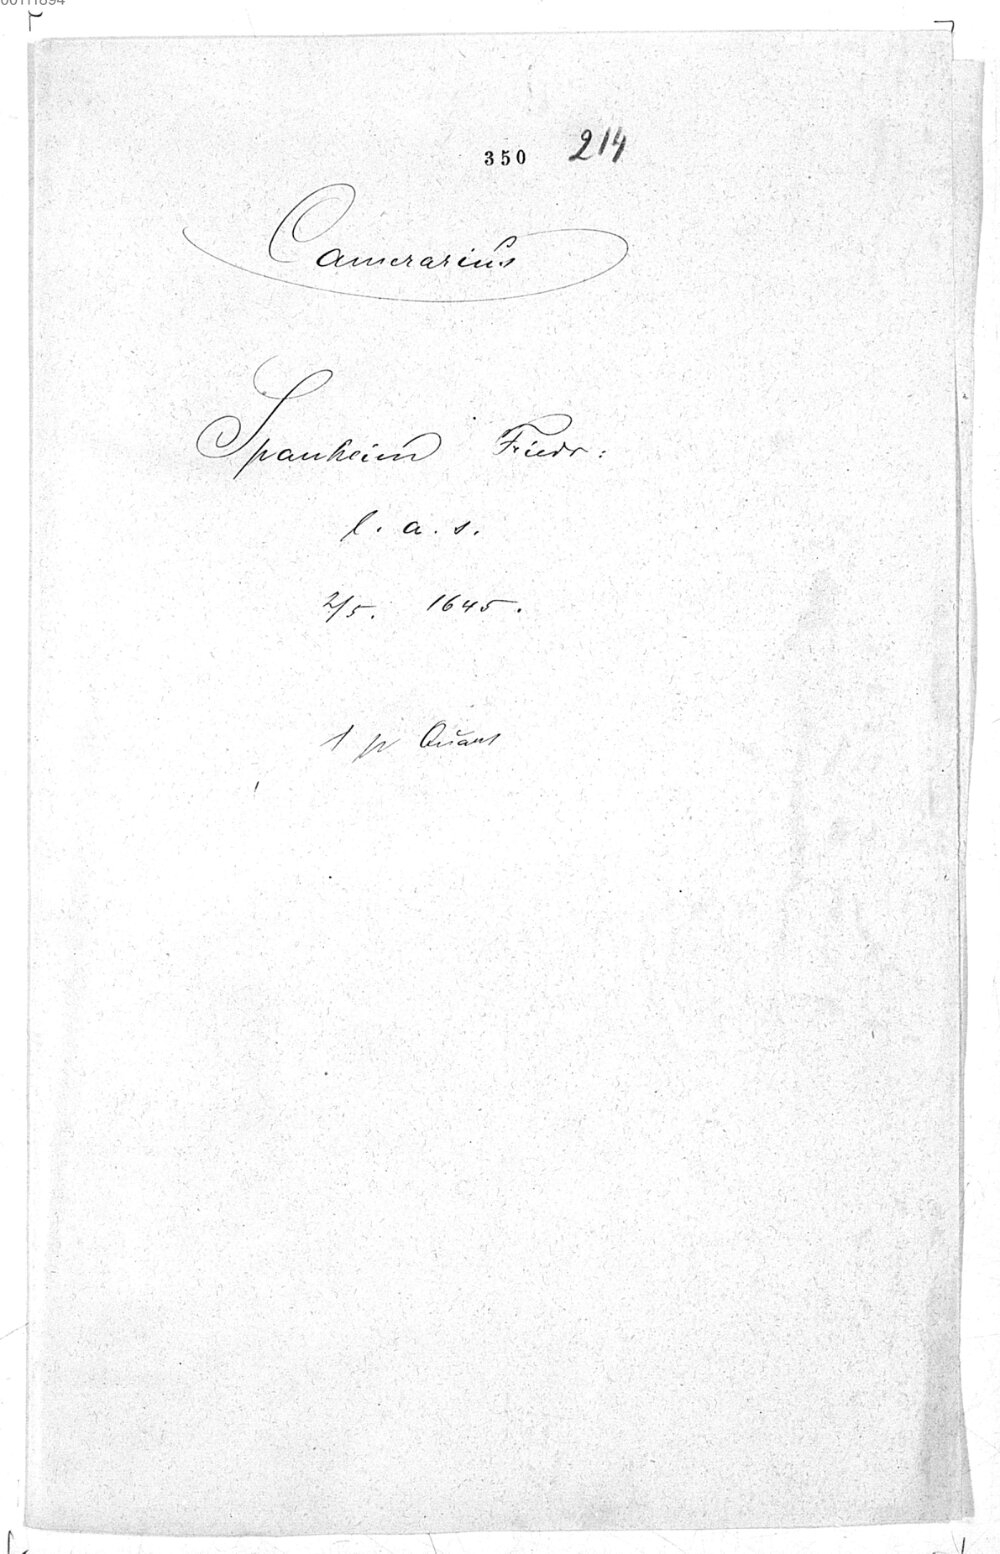 00111894
350 214
Camerarius
Spanheim Friedr:
l. a. s.
2/5. 1645.
1 p Quart